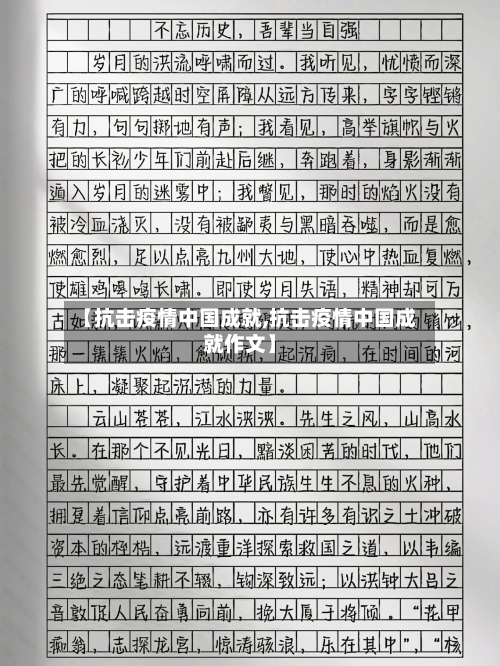 不忘历史，吾辈当自强
岁月的洪流呼啸而过。我听见，忧愤而深
广的呼喊跨越时空屏障从远方传来，字字铿锵
有力，句句掷地有声；我看见，高举旗帜与火
把的长衫少年们前赴后继，奔跑着，身影渐渐
遁入岁月的迷雾中；我瞥见，那时的焰火没有
被冷血浇灭，没有被鄙夷与黑暗吞噬，而是愈
燃愈烈，足以点亮九州大地，使心中热血复燃，
使雄鸡唤鸣长啸。即使岁月失语，精神却可万
【抗击疫情中国成就,抗击疫情中国成
就作文】
那一簇簇火焰，愈
起沉疴，在时间的河
床上，凝聚起沉潜的力量。
云山苍苍，江水泱泱。先生之风，山高水
长。在那个不见光日，黯淡困苦的时代，他们
最先觉醒，守护着中华民族生生不息的火种，
拥趸着信仰点亮前路，亦有许多有识之士冲破
资本的桎梏，远渡重洋探索救国之道，以韦编
三绝之态笔耕不辍，钩深致远；以洪钟大吕之
音敦促人民奋勇向前，挽大厦于将倾。“花甲
痴翁，志探龙宫，惊涛骇浪，乐在其中”，“核